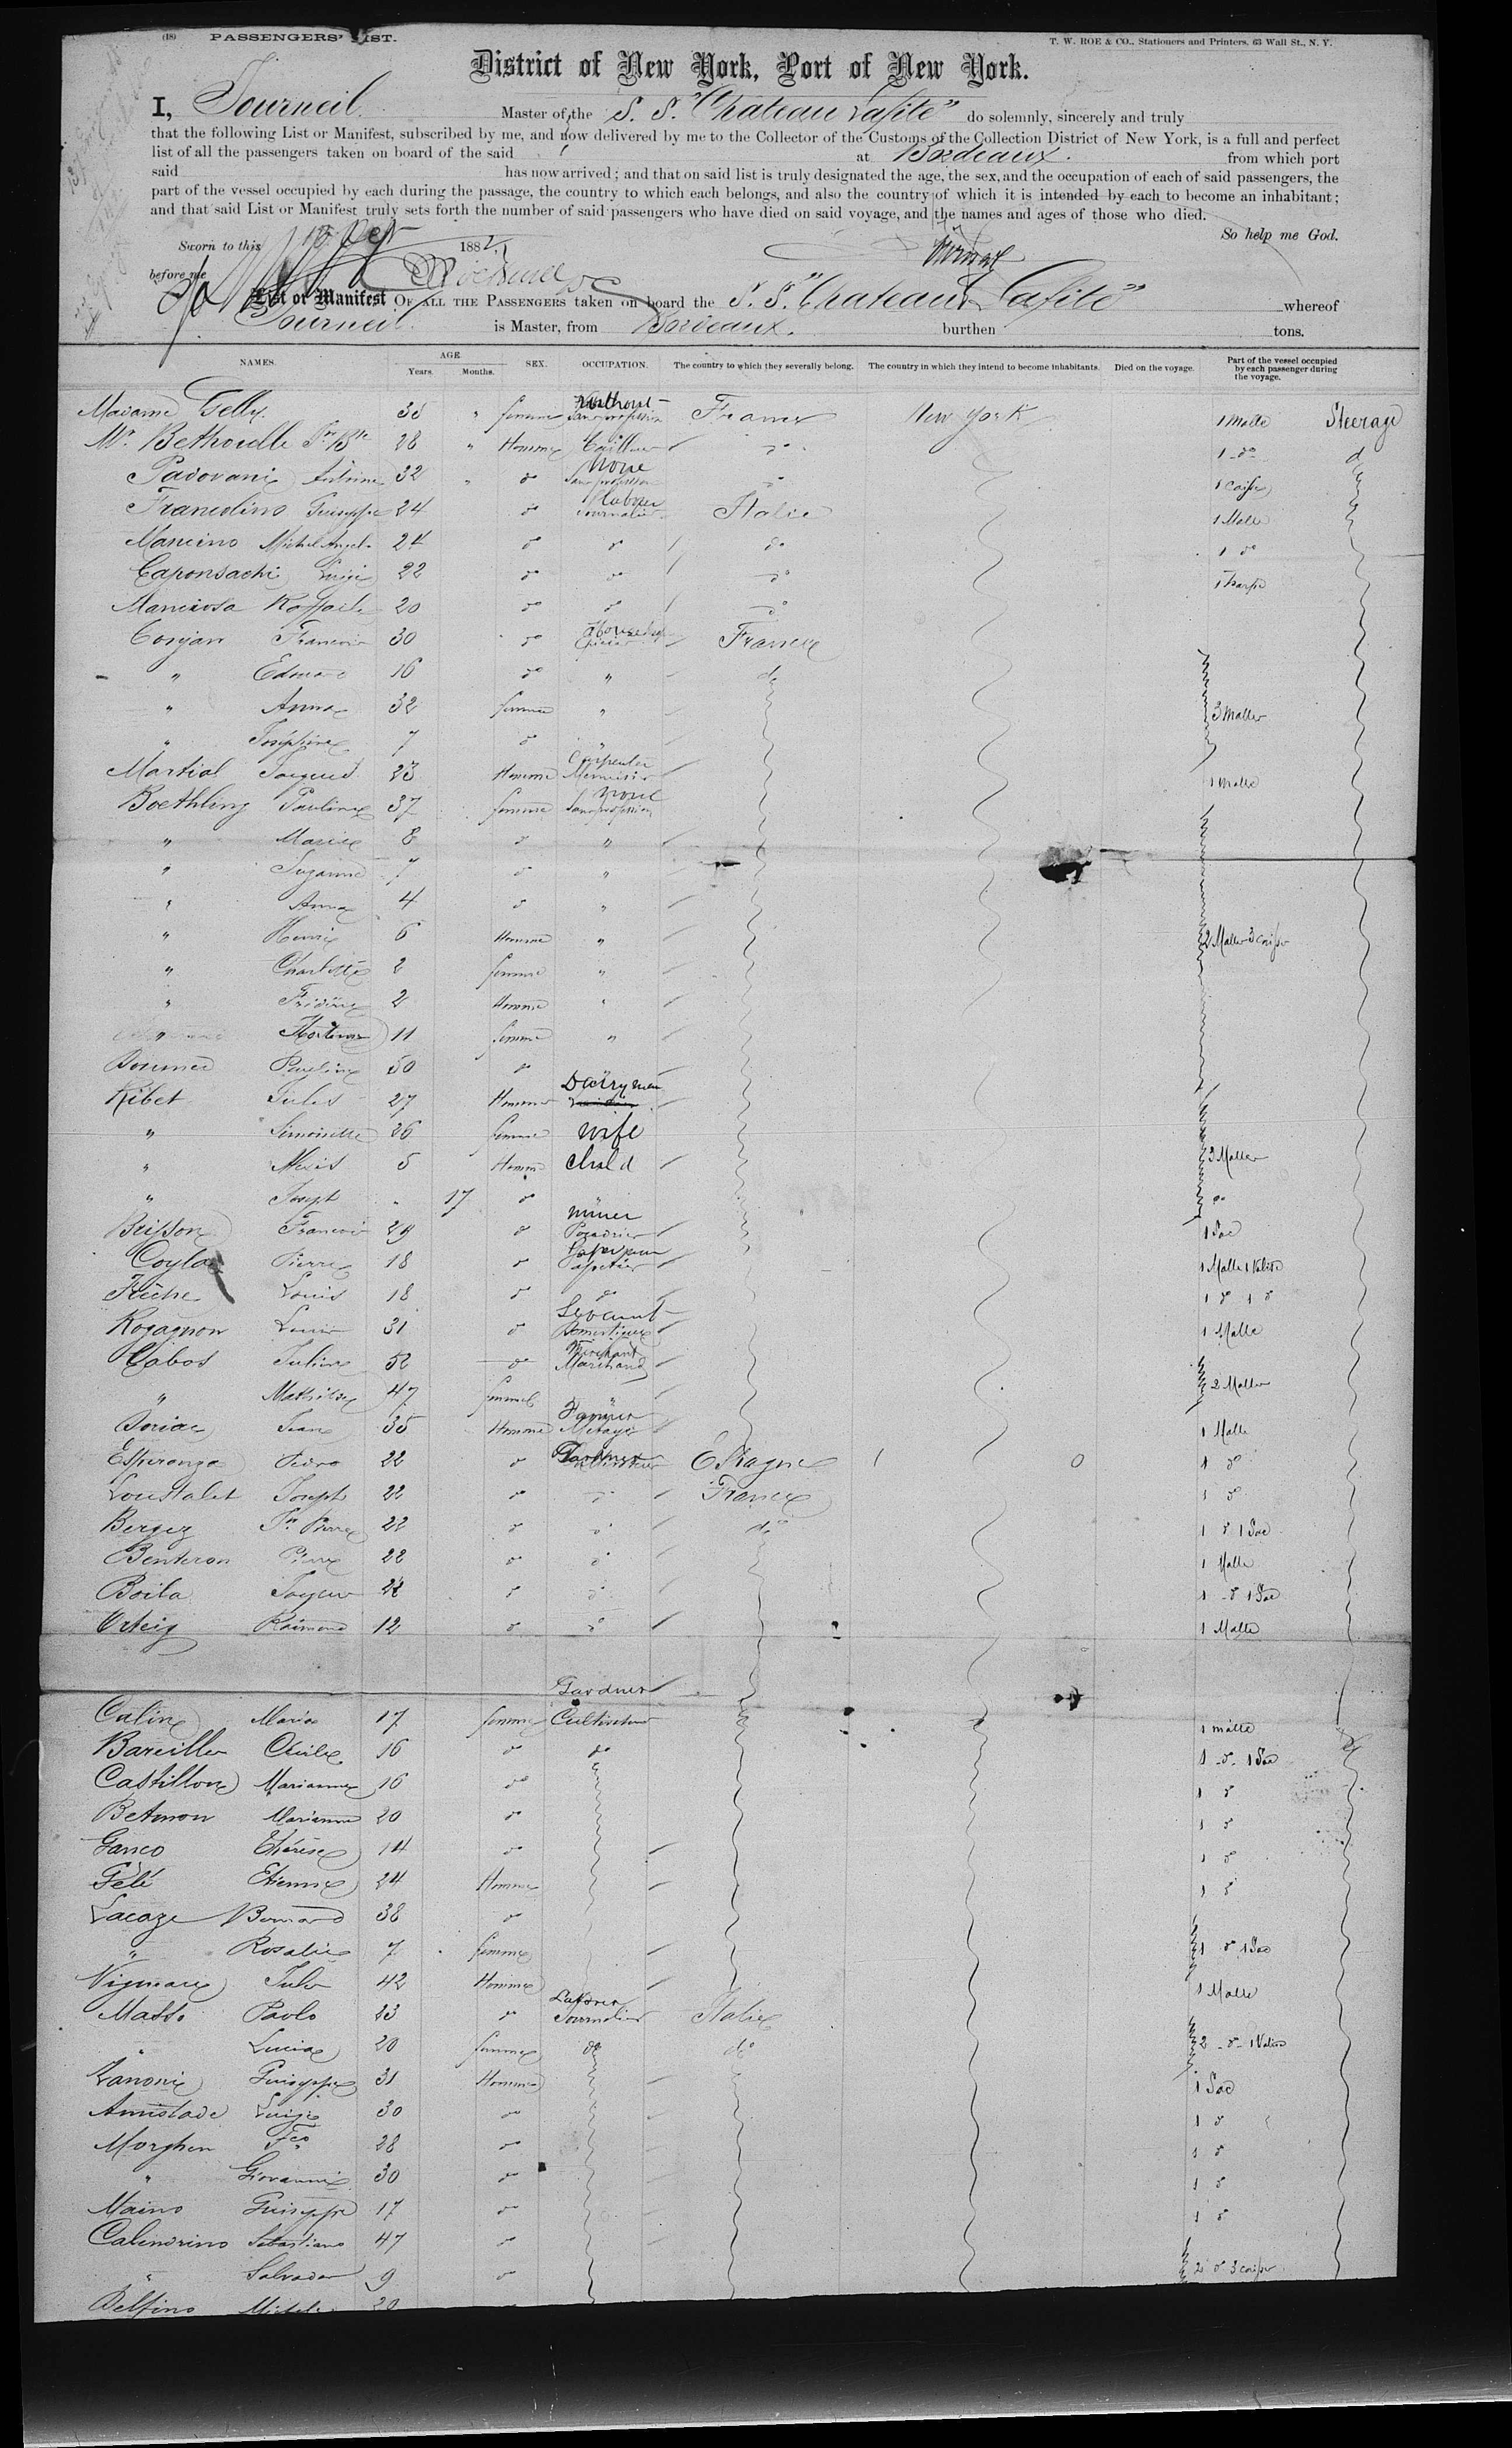 (18) PASSENGERS' LIST. T. W. ROE & CO., Stationers and Printers, 63 Wall St., N. Y.
District of New York, Port of New York.
I, Tourneil Master of the S. S. "Chateau Lafite" do solemnly, sincerely and truly
that the following List or Manifest, subscribed by me, and now delivered by me to the Collector of the Customs of the Collection District of New York, is a full and perfect
list of all the passengers taken on board of the said at Bordeaux. from which port
said has now arrived; and that on said list is truly designated the age, the sex, and the occupation of each of said passengers, the
part of the vessel occupied by each during the passage, the country to which each belongs, and also the country of which it is intended by each to become an inhabitant;
and that said List or Manifest truly sets forth the number of said passengers who have died on said voyage, and the names and ages of those who died.
So help me God.
Sworn to this 188
before me
List or Manifest OF ALL THE PASSENGERS taken on board the S. S. "Chateau Lafite" whereof
Tourneil is Master, from Bordeaux. burthen tons.
NAMES. AGE Years. Months. SEX. OCCUPATION. The country to which they severally belong. The country in which they intend to become inhabitants. Died on the voyage. Part of the vessel occupied by each passenger during the voyage.
Madame Gelly. 35 " femme Without Sans profession France New York 1 Malle Steerage
Mr. Bethouille Jn Bte 28 " Homme do 1 do
Padovani Antoine 32 " do None Sans profession do 1 caisse
Francolino Guiseppe 24 do Labrer Journalier Italie 1 Malle
Mancino Michel Angelo 24 do do do 1 do
Caponsachi Luigi 22 do do do 1 harpe
Mancirosa Raffaele 20 do do do
Conjan Francois 30 do France
" Edouard 16 do " do
" Anna 32 femme " 3 Malles
" Josephine 7 do "
Martial Jacques 23 Homme Carpenter Menuisier 1 Malle
Boethling Pauline 37 femme None Sans profession
" Marie 8 do "
" Suzanne 7 do "
" Anna 4 do "
" Henri 6 Homme " 2 Malles 3 caisses
" Charlotte 2 femme "
" 2 Homme "
" 11 femme "
Pauline 50 do
Ribet Jules 27 Homme Dairyman
" Simonette 26 femme wife
" Alexis 5 Homme child 3 Malles
" Joseph 17 do "
Brisson Francois 29 do miner 1 Sac
Coyla Pierre 18 do Papetier 1 Malle 1 Valise
Louis 18 do do 1 do 1 do
Rogagnon Louis 31 do Servant Domestique 1 Malle
Cabos Julien 52 do Merchant Marchand
" Mathilde 47 femme " 2 Malles
Doriac Jean 35 Homme Farmer Metayer 1 Malle
Esperanza Pedro 22 do Espagne 1 do
Loustalet Joseph 22 do do France 1 do
Bergez Jn Pierre 22 do do do 1 do 1 Sac
Benteron Pierre 22 do do 1 Malle
Boila 22 do do 1 do 1 Sac
Orteig Raimond 12 do do 1 Malle
Gardner
Calin Maria 17 femme Cultivateur 1 malle
Bareille 16 do do 1 do 1 Sac
Castillon Marianne 16 do 1 do
Betmon Marianne 20 do 1 do
Ganco Thérèse 14 do 1 do
Gélé Etienne 24 Homme 1 do
Lacaze Bernard 38 do
" Rosalie 7 femme 1 do 1 Sac
Vigneaux Jules 42 Homme 1 Malle
Masso Paolo 23 do Laborer Journalier Italie
" Lucia 20 femme do do 2 do 1 Valise
Zanoni Guiseppe 31 Homme 1 Sac
Amistade Luigi 30 do 1 do
Morghen Fco 28 do 1 do
" Giovanni 30 do 1 do
Maino Guiseppe 17 do 1 do
Calindrino Sebastiano 47 do
" Salvador 9 do 2 do 3 caisses
Delfino 20